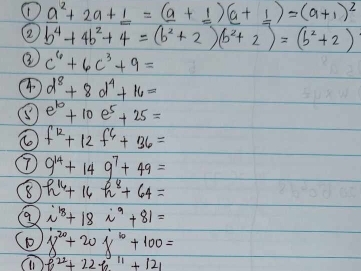 ① a² + 2a + 1 = (a + 1)(a + 1) = (a+1)²
② b⁴ + 4b² + 4 = (b² + 2)(b² + 2) = (b² + 2)
③ c⁶ + 6c³ + 9 =
④ d⁸ + 8d⁴ + 16 =
⑤ e¹⁰ + 10e⁵ + 25 =
⑥ f¹² + 12f⁶ + 36 =
⑦ g¹⁴ + 14g⁷ + 49 =
⑧ h¹⁶ + 16h⁸ + 64 =
⑨ i¹⁸ + 18i⁹ + 81 =
⑩ j²⁰ + 20j¹⁰ + 100 =
⑪ k²² + 22k¹¹ + 121